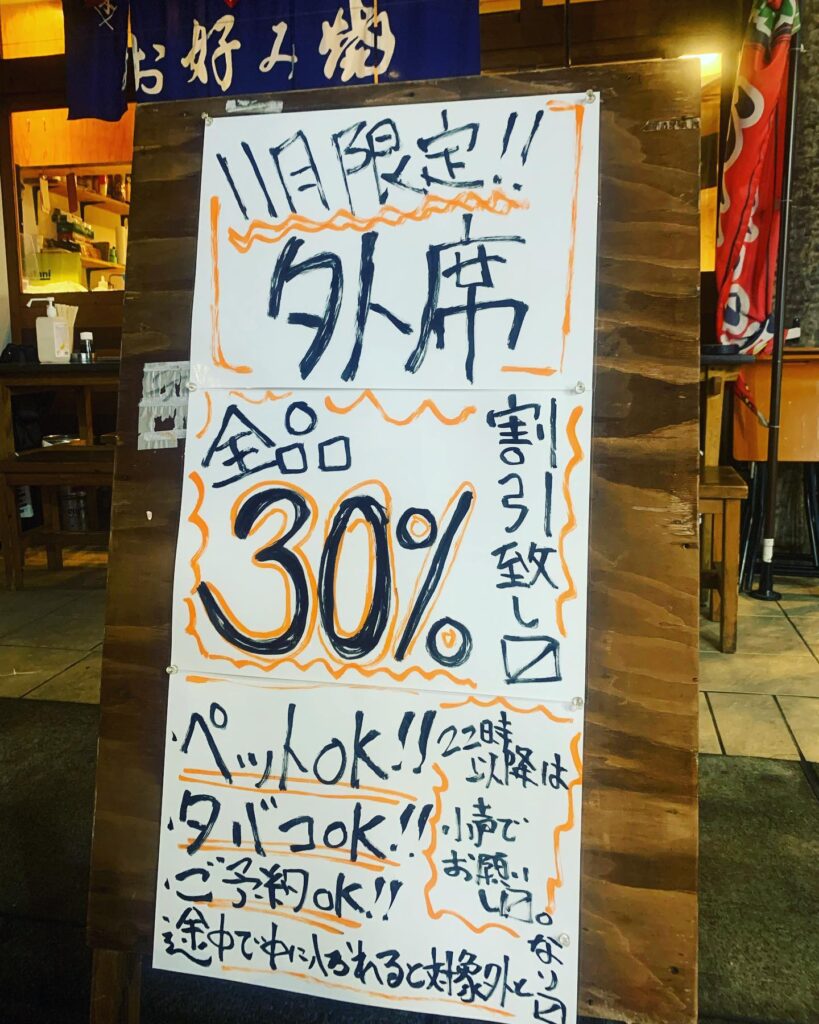 お好み焼
11月限定!!
外席
全品
30%
割引致し〼
ペットOK!!
タバコOK!!
ご予約OK!!
22時
以降は
小声で
お願い
し〼。
途中で中に入られると対象外と
なり〼